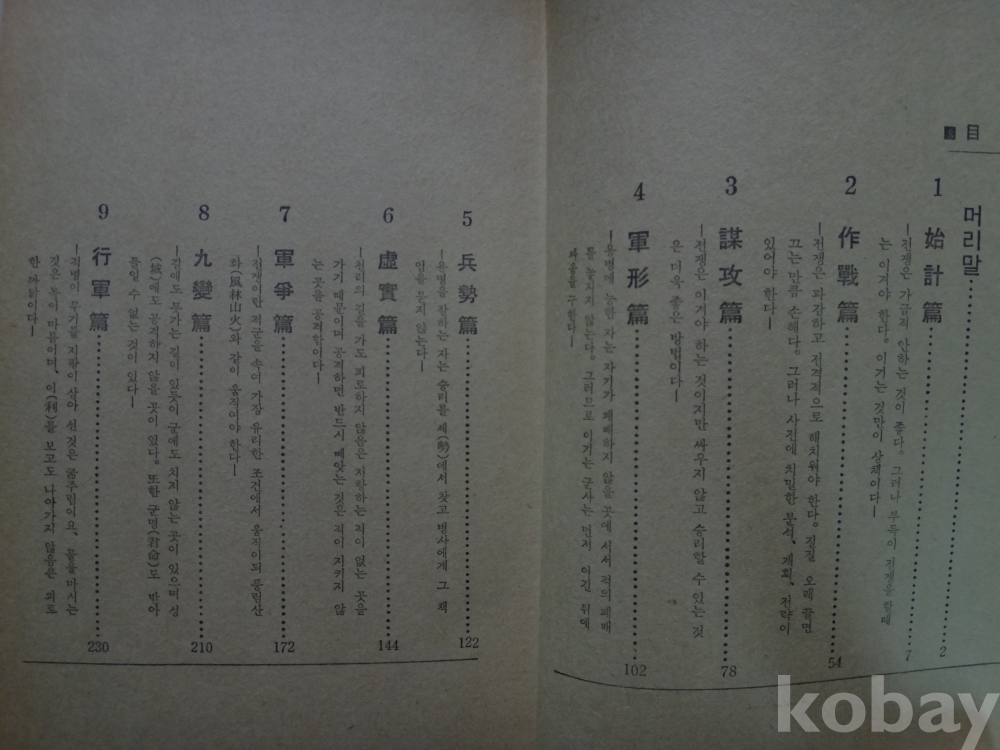 目
머리말 2
1 始計篇 7
―전쟁은 가급적 안하는 것이 좋다. 그러나 부득이 전쟁을 할때
는 이겨야 한다. 이기는 것만이 상책이다―
2 作戰篇 54
―전쟁은 과감하고 전격적으로 해치워야 한다. 질질 오래 끌면
끄는 만큼 손해다. 그러나 사전에 치밀한 분석, 계획, 전략이
있어야 한다―
3 謀攻篇 78
―전쟁은 이겨야 하는 것이지만 싸우지 않고 승리할 수 있는 것
은 더욱 좋은 방법이다―
4 軍形篇 102
―용병에 능한 자는 자기가 패배하지 않을 곳에 서서 적의 패배
를 놓치지 않는다. 그러므로 이기는 군사는 먼저 이긴 뒤에
싸움을 구한다―
5 兵勢篇 122
―용병을 잘하는 자는 승리를 세(勢)에서 찾고 병사에게 그 책
임을 묻지 않는다―
6 虛實篇 144
―천리의 길을 가도 피로하지 않음은 저항하는 적이 없는 곳을
가기 때문이며 공격하면 반드시 빼앗는 것은 적이 지키지 않
는 곳을 공격함이다―
7 軍爭篇 172
―전쟁이란 적군을 속여 가장 유리한 조건에서 움직이되 풍림산
화(風林山火)와 같이 움직여야 한다―
8 九變篇 210
―길에도 못가는 길이 있듯이 군에도 치지 않는 곳이 있으며 성
(城)에도 공격하지 않을 곳이 있다. 또한 군명(君命)도 받아
들일 수 없는 것이 있다―
9 行軍篇 230
―적병이 무기를 지팡이삼아 선 것은 굶주림이요, 물을 마시는
것은 목이 마름이며, 이(利)를 보고도 나아가지 않음은 피로
한 까닭이다―
kobay